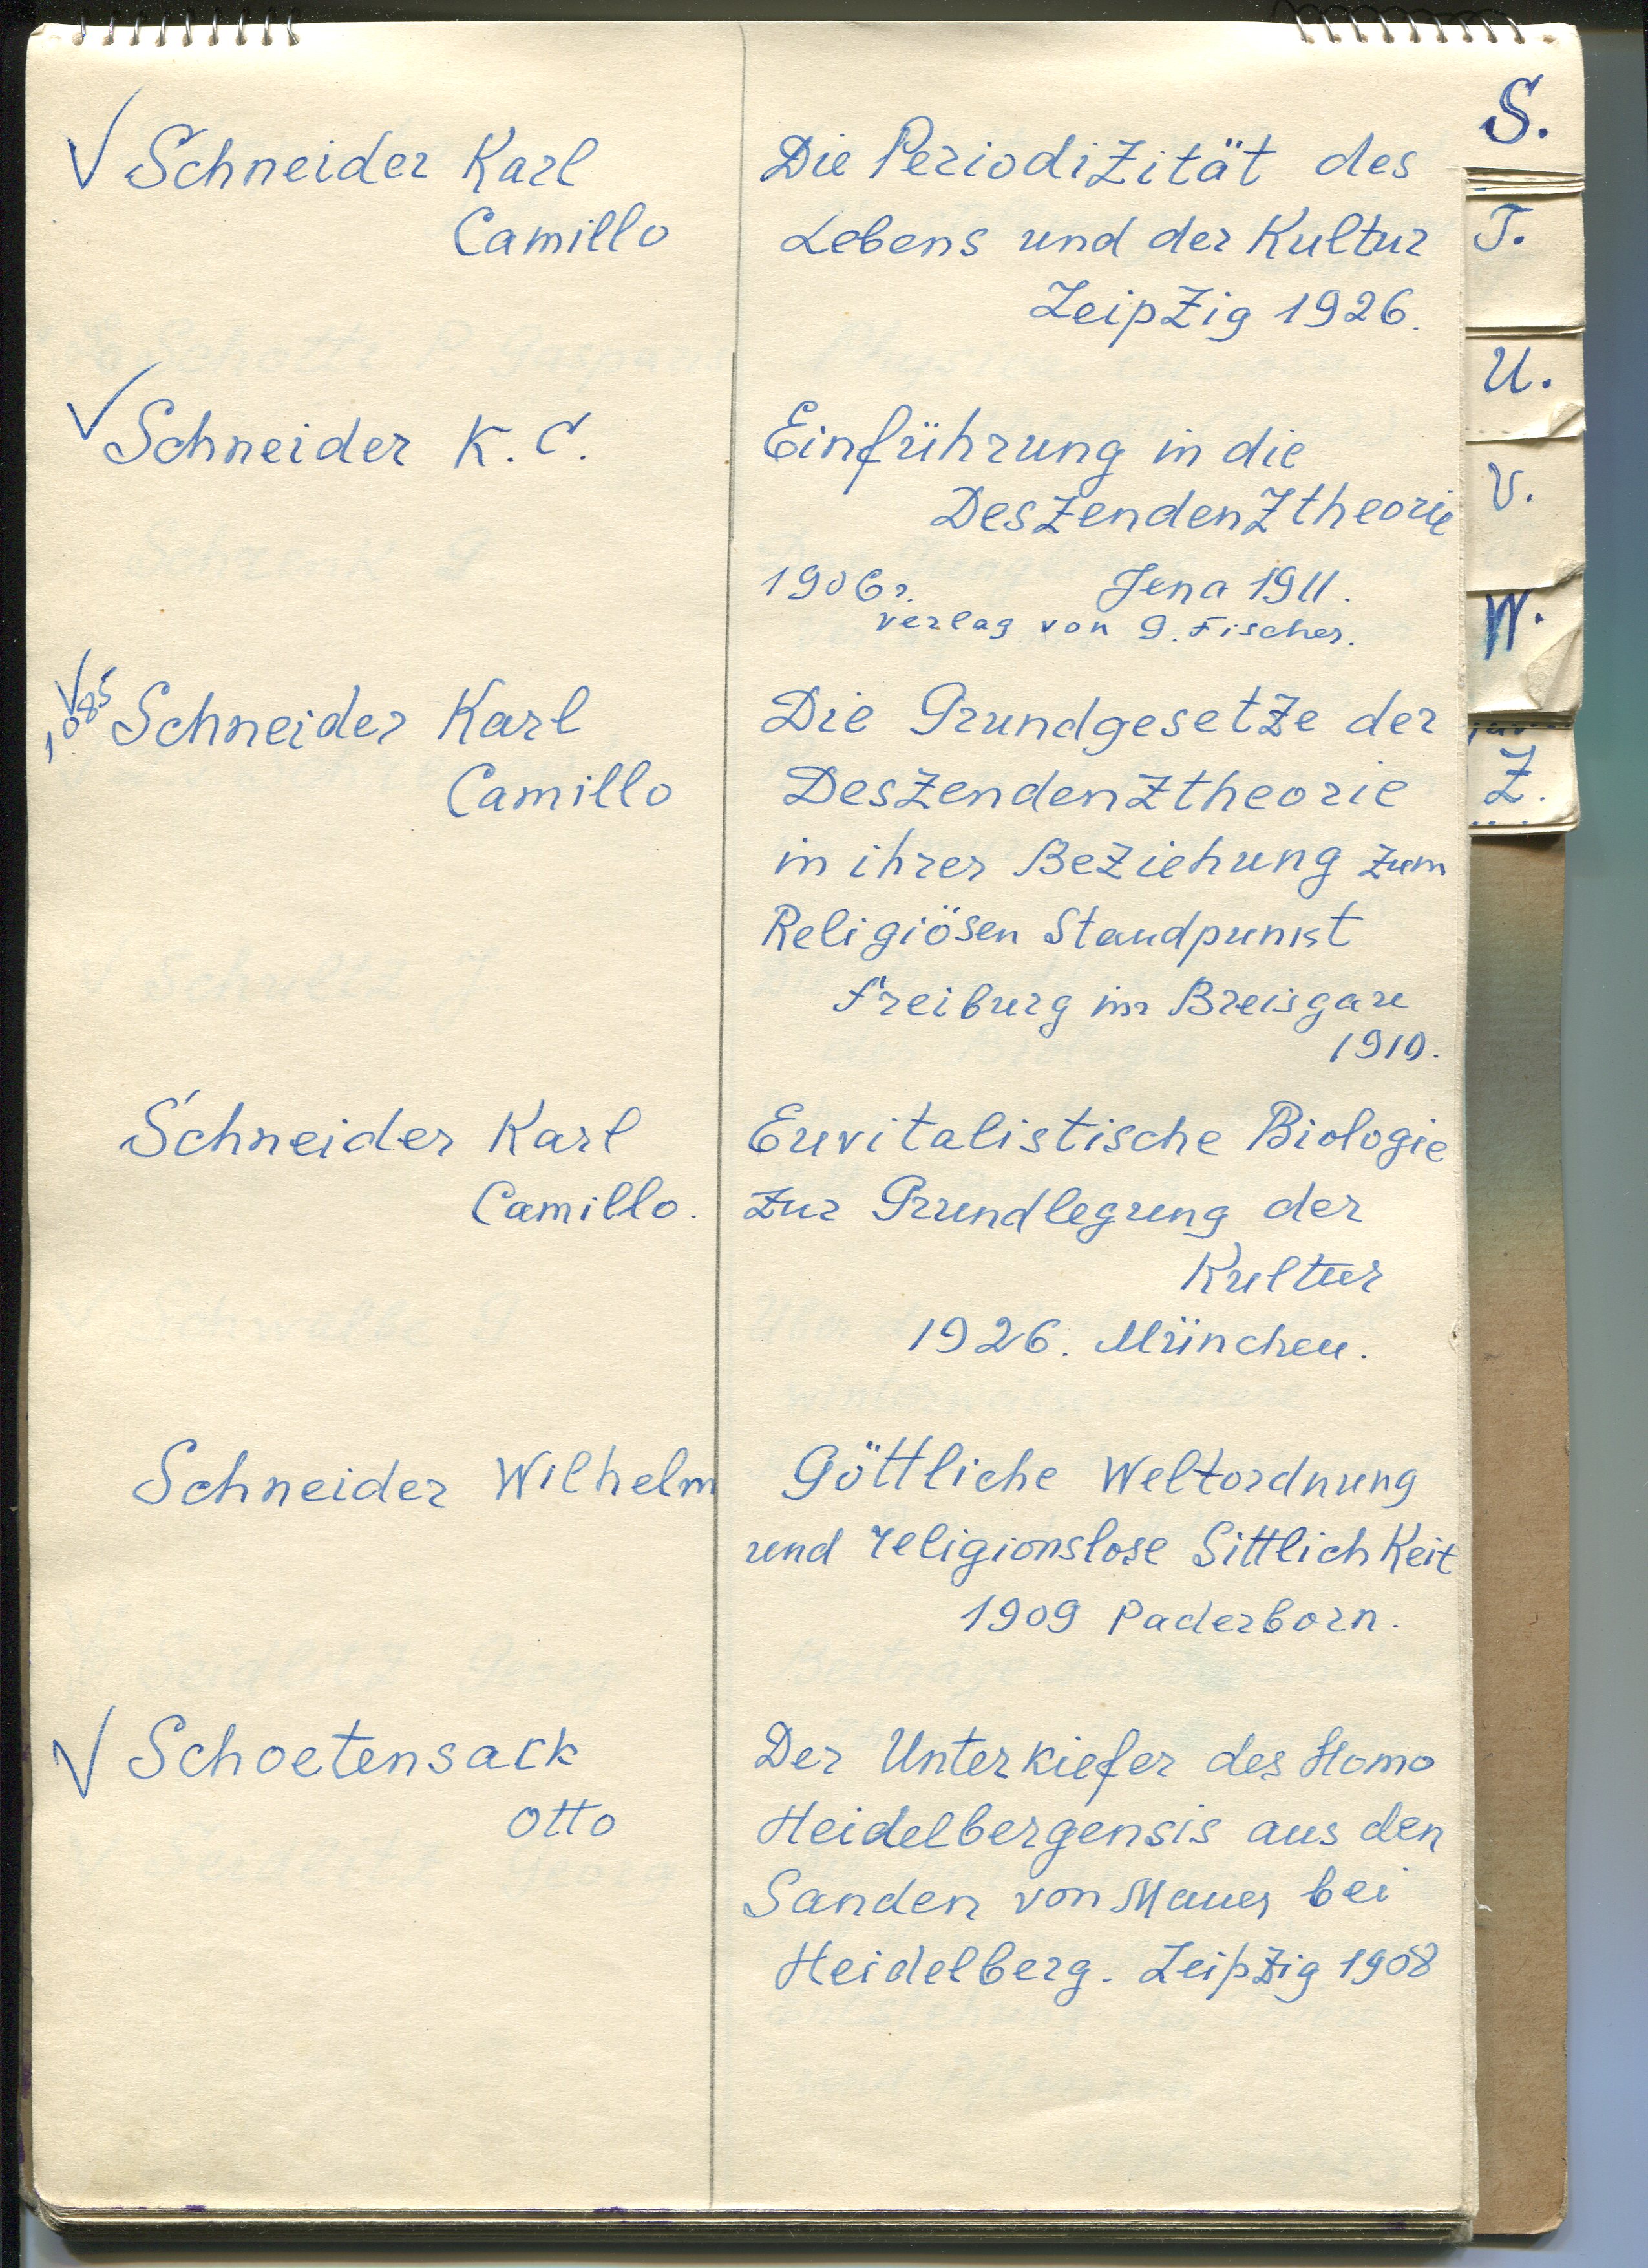 S.
T.
U.
V.
W.
Z.
√ Schneider Karl
Camillo
Die Periodizität des
Lebens und der Kultur
Leipzig 1926.
√ Schneider K. C.
Einführung in die
Deszendenztheorie
1906r. Jena 1911.
verlag von G. Fischer.
√ 1085 Schneider Karl
Camillo
Die Grundgesetze der
Deszendenztheorie
in ihrer Beziehung zum
Religiösen Standpunkt
Freiburg im Breisgau
1910.
Schneider Karl
Camillo.
Euvitalistische Biologie
zur Grundlegung der
Kultur
1926. München.
Schneider Wilhelm
Göttliche Weltordnung
und religionslose Sittlichkeit
1909 Paderborn.
√ Schoetensack
Otto
Der Unterkiefer des Homo
Heidelbergensis aus den
Sanden von Mauer bei
Heidelberg. Leipzig 1908